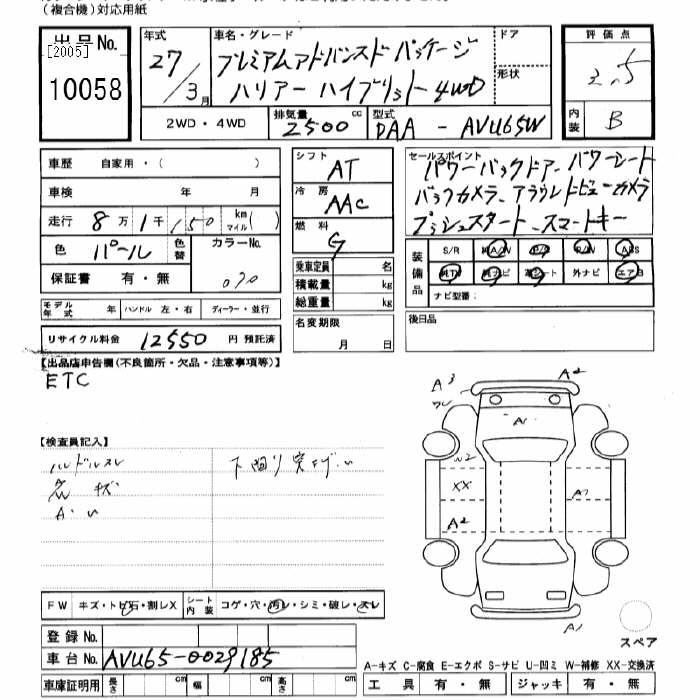 (複合機)対応用紙
出品No.
[2005]
10058
年式 27/3月
車名・グレード プレミアムアドバンスドパッケージ
ハリアー ハイブリット 4WD
ドア
形状
評価点 3.5
内装 B
2WD・4WD
排気量 2500 cc
型式 DAA - AVU65W
車歴 自家用・( )
車検 年 月
走行 8万1千150 km マイル( )
色 パール 色替 カラーNo. 070
保証書 有・無
モデル年式 年 ハンドル 左・右 ディーラー・並行
リサイクル料金 12550 円 預託済
シフト AT
冷房 AAC
燃料 G
乗車定員 名
積載量 kg
総重量 kg
名変期限
月 日
セールスポイント
パワーバックドア、パワーシート
バックカメラ、アラウンドビューカメラ
プッシュスタート、スマートキー
装備品
S/R 純A/W P/S P/W ABS
純TV 純ナビ 革シート 外ナビ エアB
ナビ型番:
後日品
【出品店申告欄(不良箇所・欠品・注意事項等)】
ETC
【検査員記入】
ハンドルスレ
下廻り
キズ
A3
A2
A1
XX
A2
A1
A1
FW キズ・トビ石・割レX
シート内装 コゲ・穴・汚レ・シミ・破レ・スレ
登録No.
車台No. AVU65-0029185
車庫証明用 長さ cm 幅 cm 高さ cm
スペア
A-キズ C-腐食 E-エクボ S-サビ U-凹ミ W-補修 XX-交換済
工具 有・無 ジャッキ 有・無